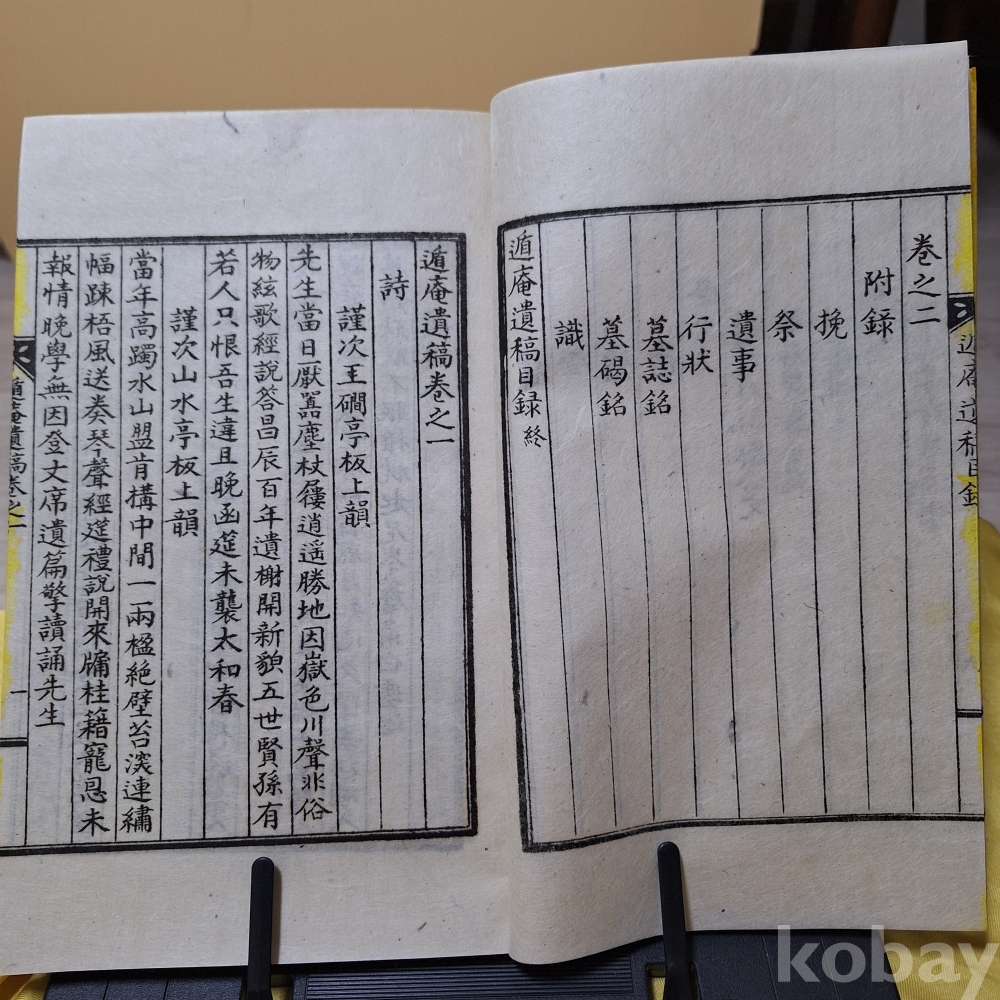 卷之二
附録
挽
祭
遺事
行狀
墓誌銘
墓碣銘
識
遁庵遺稿目録 終
遁庵遺稿目録
遁庵遺稿卷之一
詩
謹次王磵亭板上韻
先生當日厭囂塵杖屨逍遥勝地因嶽色川聲非俗
物絃歌經說答昌辰百年遺榭開新貌五世賢孫有
若人只恨吾生違且晚函筵未襲太和春
謹次山水亭板上韻
當年高躅水山盟肯構中間一兩楹絶壁苔淡連繡
幅踈梧風送奏琴聲經筵禮說開來牖桂籍寵恩未
報情晚學無因登丈席遺篇擎讀誦先生
遁庵遺稿卷之一
一
kobay